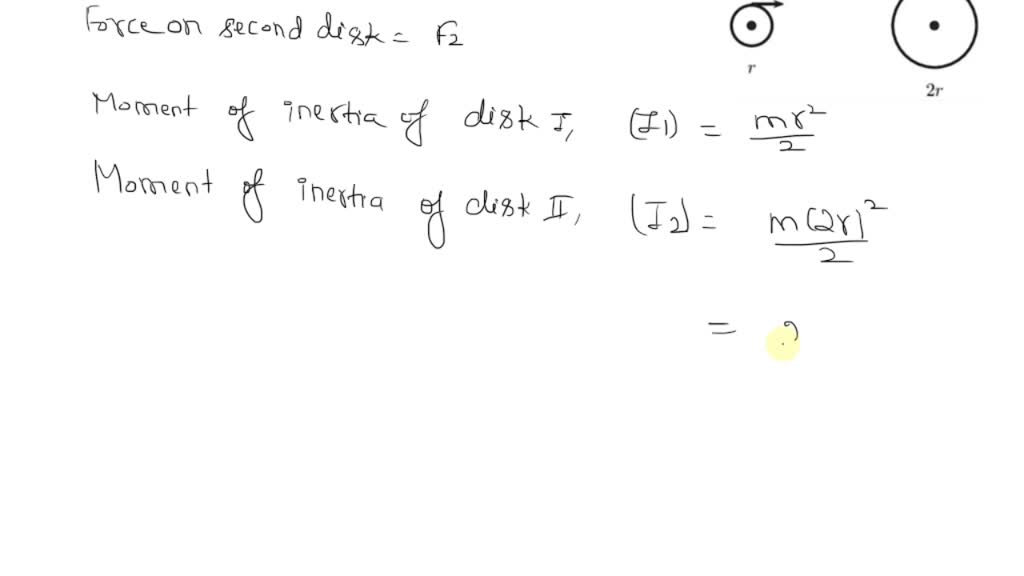 Force on second disk = F2
r
2r
Moment of inertia of disk I, (I1) = mr²/2
Moment of inertia of disk II, (I2) = m(2r)²/2
=